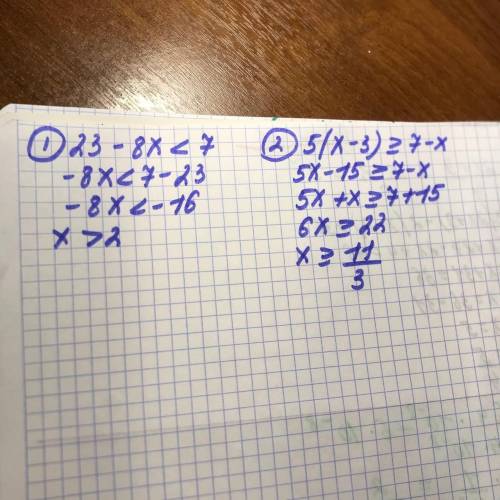 ① 23 - 8x < 7
-8x < 7 - 23
-8x < -16
x > 2
② 5(x - 3) ≥ 7 - x
5x - 15 ≥ 7 - x
5x + x ≥ 7 + 15
6x ≥ 22
x ≥ 11/3